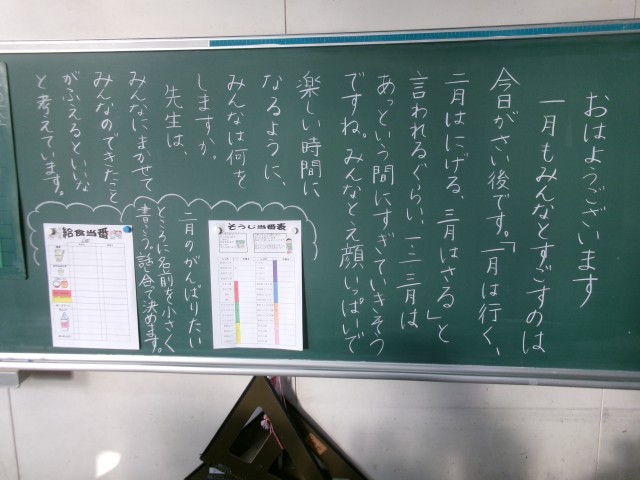 おはようございます
一月もみんなとすごすのは
今日がさい後です。「一月は行く、
二月はにげる、三月はさる」と
言われるぐらい、一二三月は
あっという間にすぎていきそう
ですね。みんなとえ顔いっぱいで
楽しい時間に
なるように、
みんなは何を
しますか。
先生は、
みんなにまかせて
みんなのできたこと
がふえるといいな
と考えています。
そうじ当番表
二月のがんばりたい
ところに名前を小さく
書こう。話合て決めます。
給食当番